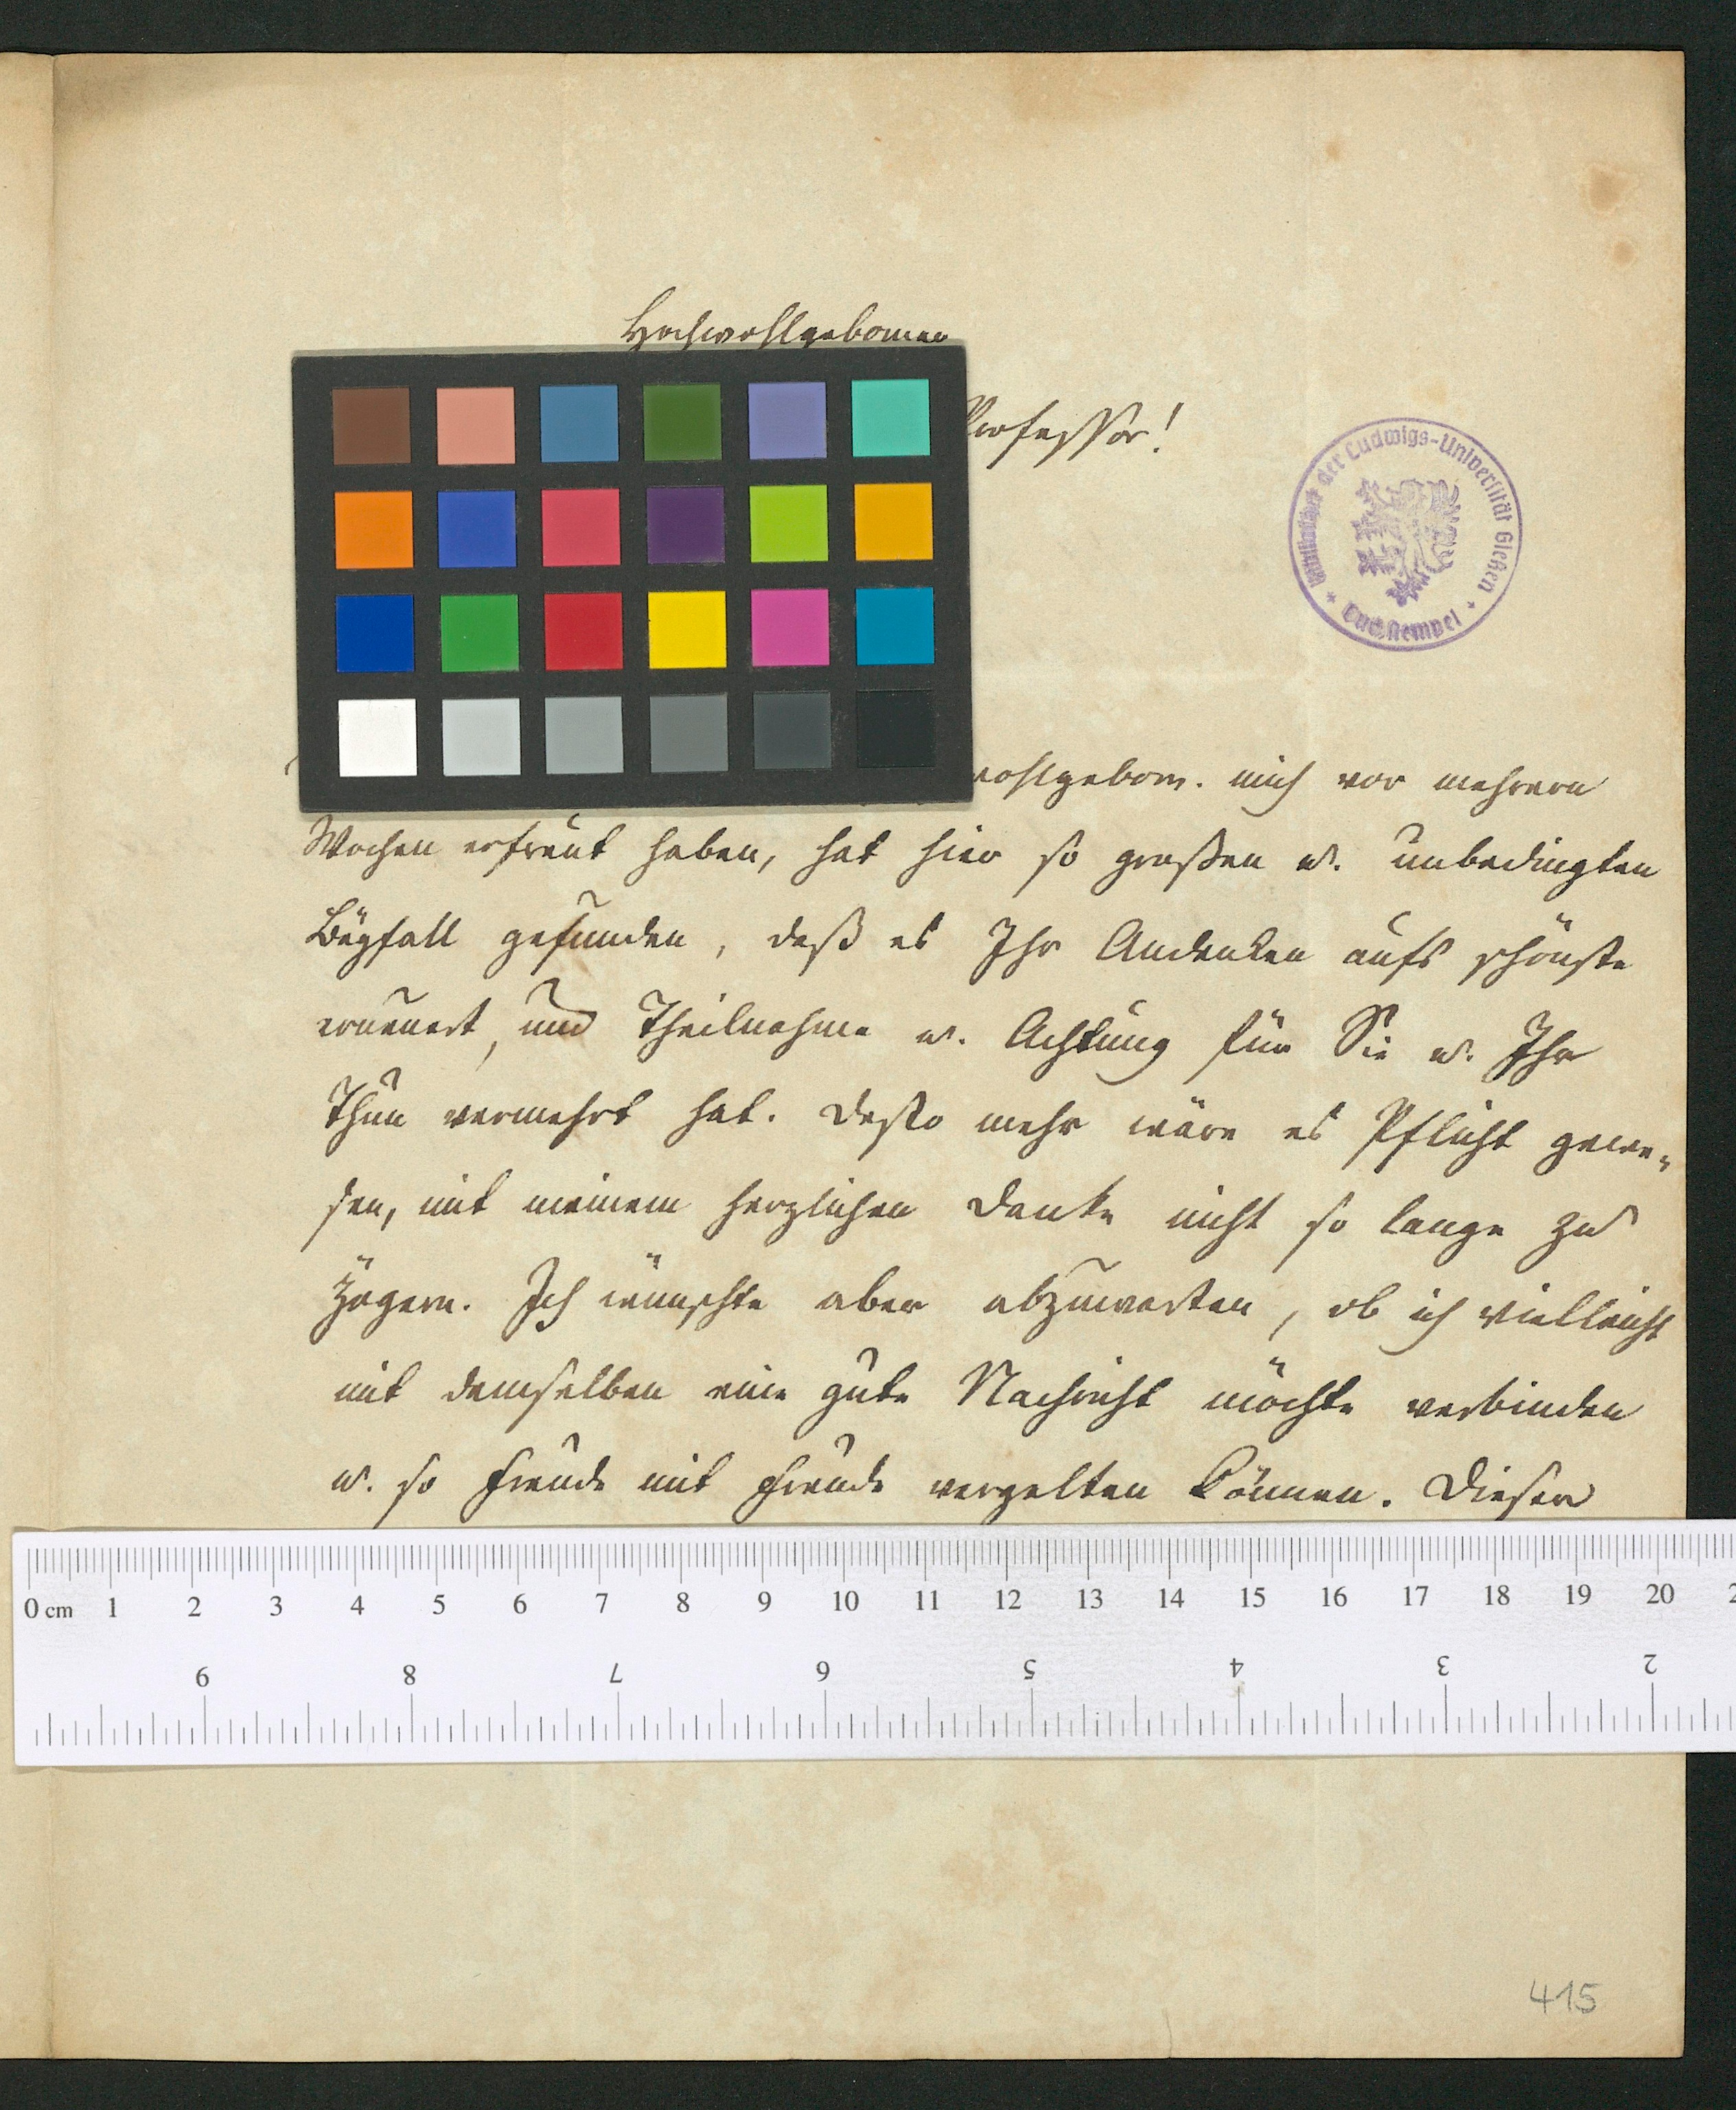 Hochwohlgeborner
Professor!
wohlgeborn. mich vor mehrern
Wochen erfreut haben, hat hier so großen u. unbedingten
Beyfall gefunden, daß es Ihr Andenken aufs schönste
erneuert, und Theilnahme u. Achtung für Sie u. Ihr
Thun vermehrt hat. Desto mehr wäre es Pflicht gewe-
sen, mit meinem herzlichen Danke nicht so lange zu
zögern. Ich wünschte aber abzuwarten, ob ich vielleicht
mit demselben eine gute Nachricht möchte verbinden
u. so Freude mit Freude vergelten können. Dieser
Bibliothek der Ludwigs-Universität Gießen
0 cm 1 2 3 4 5 6 7 8 9 10 11 12 13 14 15 16 17 18 19 20
9 8 7 6 5 4 3 2
415